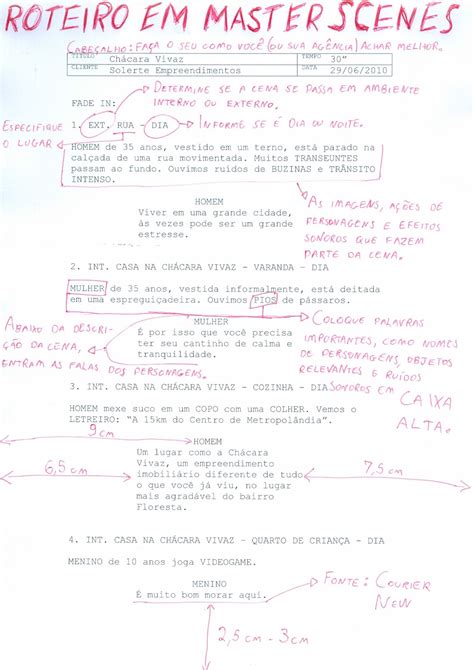 ROTEIRO EM MASTER SCENES
CABEÇALHO: FAÇA O SEU COMO VOCÊ (OU SUA AGÊNCIA) ACHAR MELHOR.
TÍTULO Chácara Vivaz TEMPO 30"
CLIENTE Solerte Empreendimentos DATA 29/06/2010
DETERMINE SE A CENA SE PASSA EM AMBIENTE
INTERNO OU EXTERNO.
FADE IN:
ESPECIFIQUE
O LUGAR
1. EXT. RUA - DIA
INFORME SE É DIA OU NOITE.
HOMEM de 35 anos, vestido em um terno, está parado na
calçada de uma rua movimentada. Muitos TRANSEUNTES
passam ao fundo. Ouvimos ruídos de BUZINAS e TRÂNSITO
INTENSO.
HOMEM
Viver em uma grande cidade,
às vezes pode ser um grande
estresse.
AS IMAGENS, AÇÕES DE
PERSONAGENS E EFEITOS
SONOROS QUE FAZEM
PARTE DA CENA.
2. INT. CASA NA CHÁCARA VIVAZ - VARANDA - DIA
MULHER de 35 anos, vestida informalmente, está deitada
em uma espreguiçadeira. Ouvimos PIOS de pássaros.
MULHER
É por isso que você precisa
ter seu cantinho de calma e
tranquilidade.
ABAIXO DA DESCRI-
ÇÃO DA CENA,
ENTRAM AS FALAS DOS PERSONAGENS.
COLOQUE PALAVRAS
IMPORTANTES, COMO NOMES
DE PERSONAGENS, OBJETOS
RELEVANTES E RUÍDOS
SONOROS EM CAIXA
ALTA.
3. INT. CASA NA CHÁCARA VIVAZ - COZINHA - DIA
HOMEM mexe suco em um COPO com uma COLHER. Vemos o
LETREIRO: "A 15km do Centro de Metropolândia".
9 cm
HOMEM
Um lugar como a Chácara
Vivaz, um empreendimento
imobiliário diferente de tudo
o que você já viu, no lugar
mais agradável do bairro
Floresta.
6,5 cm
7,5 cm
4. INT. CASA NA CHÁCARA VIVAZ - QUARTO DE CRIANÇA - DIA
MENINO de 10 anos joga VIDEOGAME.
MENINO
É muito bom morar aqui.
FONTE: COURIER
NEW
2,5 cm - 3cm